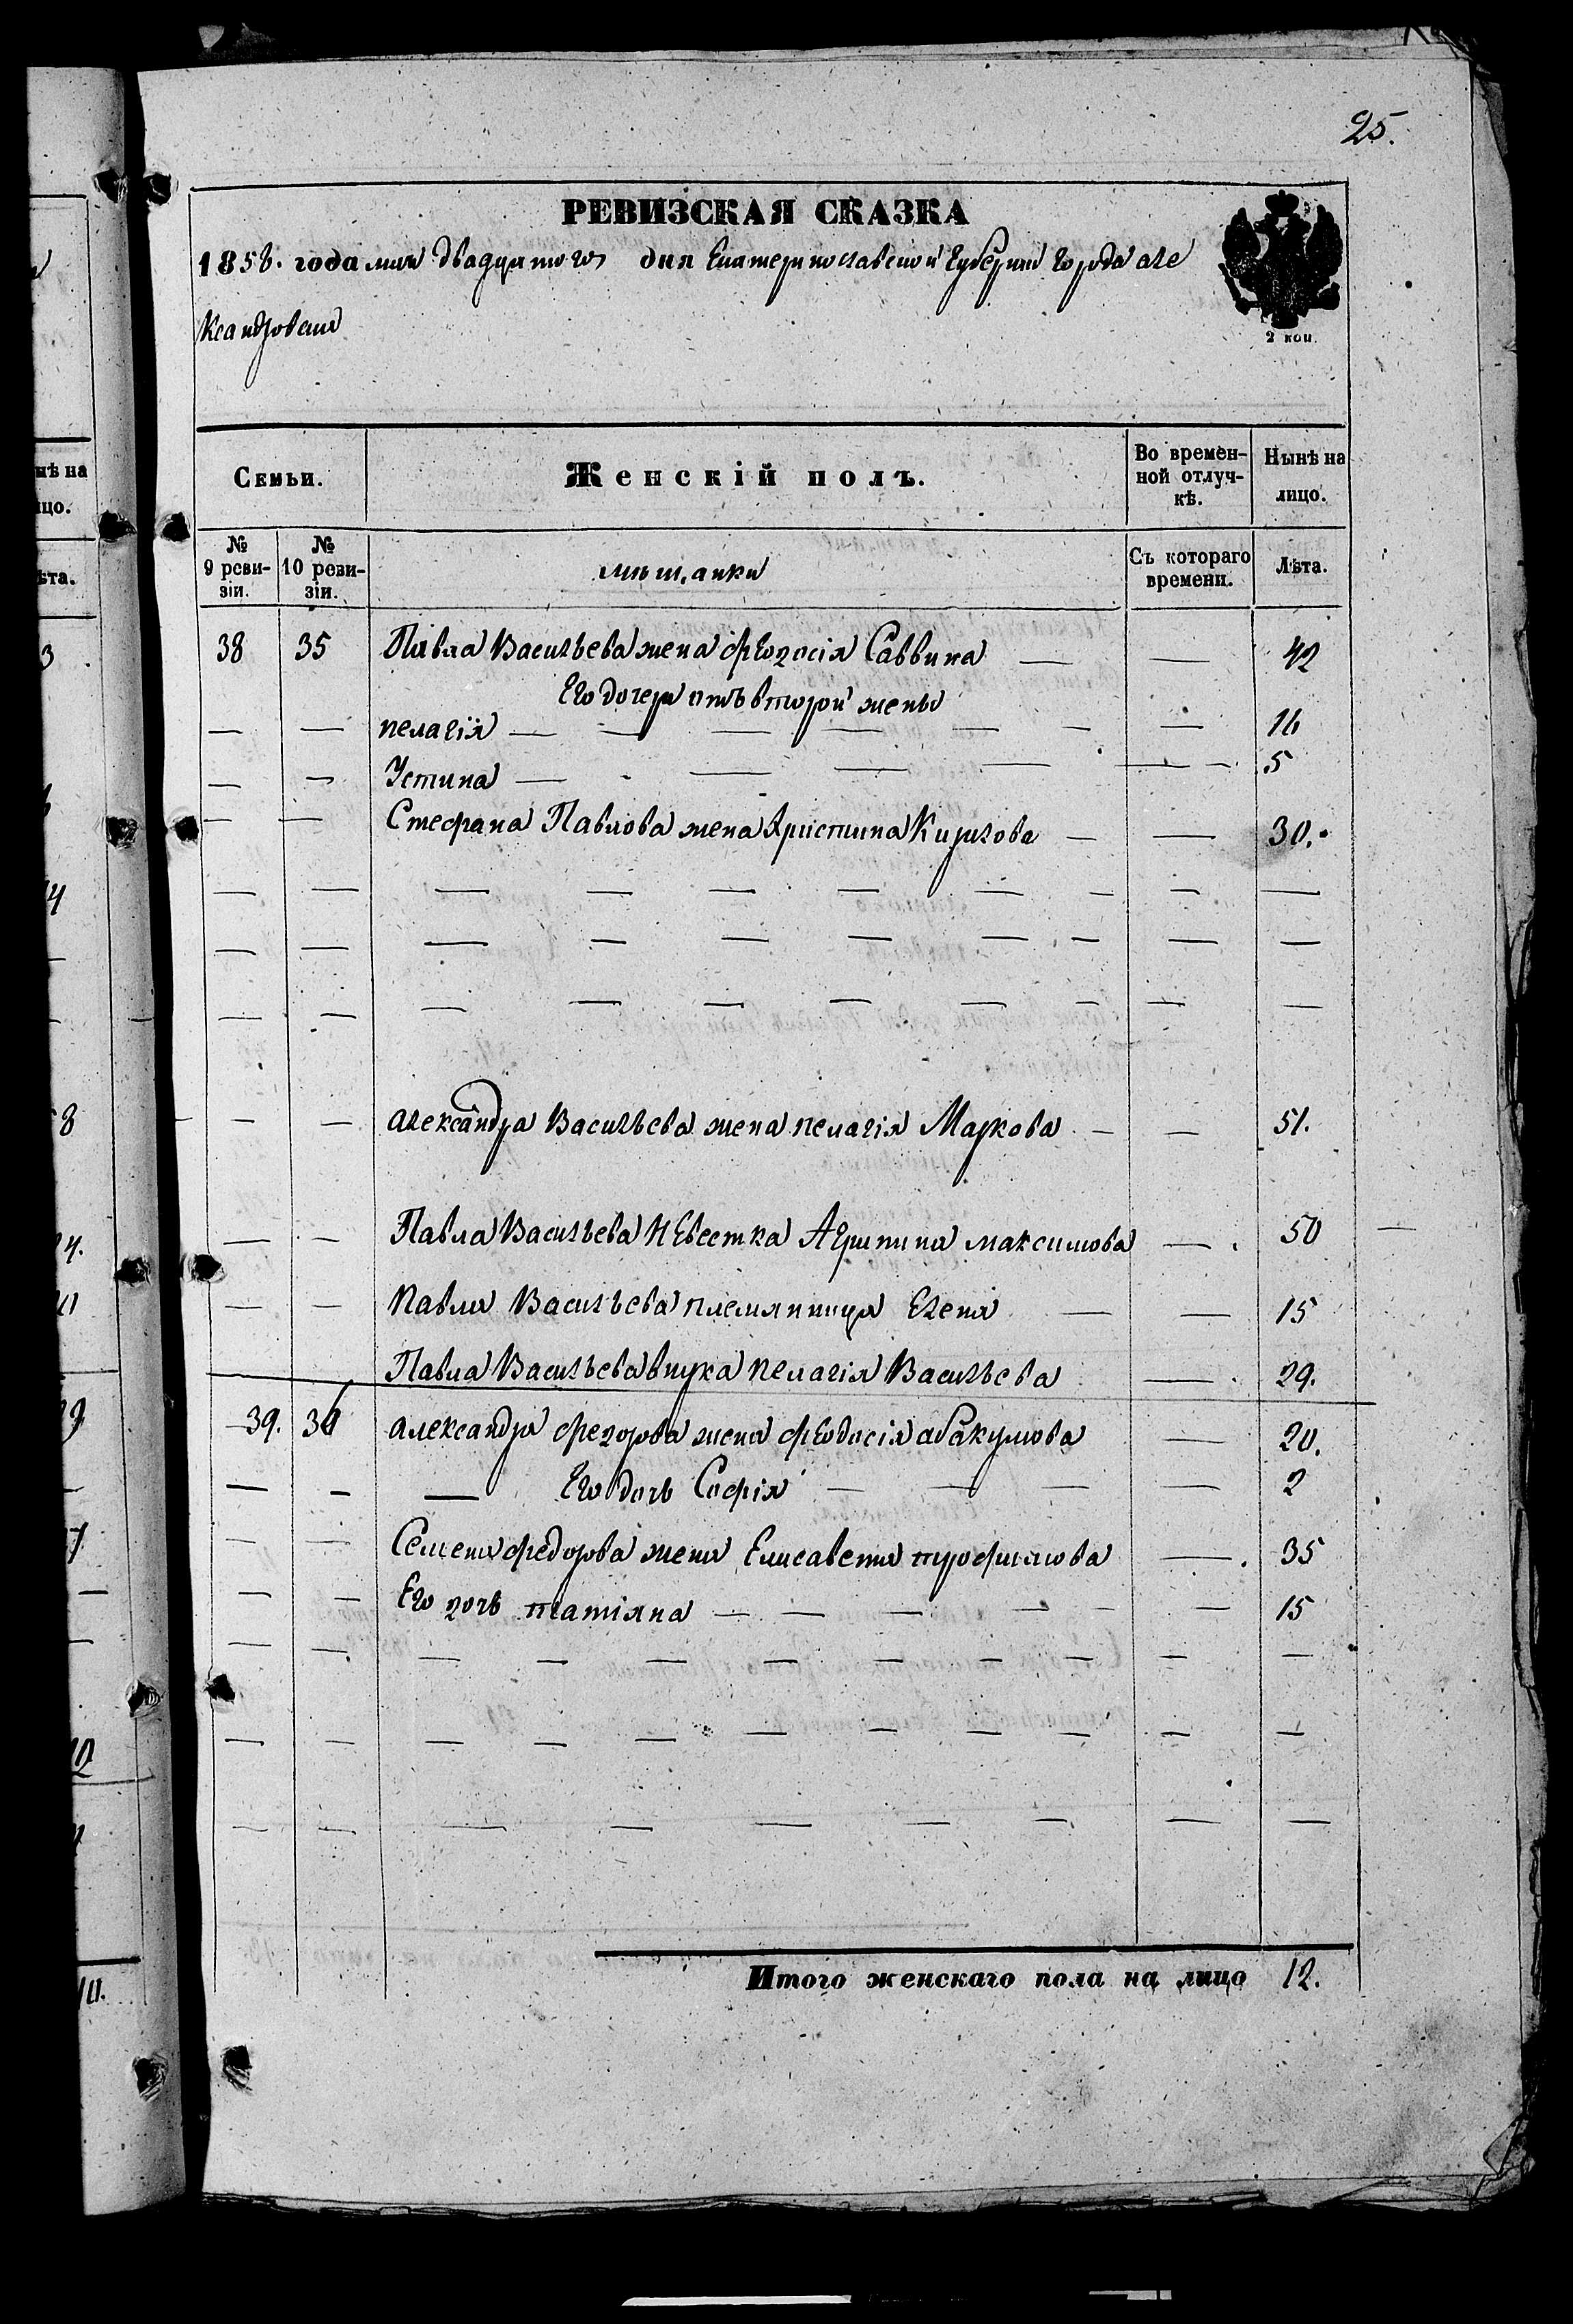 25.
РЕВИЗСКАЯ СКАЗКА
1858. года мая двадцятого дня Екатеринославской Губернии города але
ксандровска
2 коп.
Семьи.
Женскій полъ.
Во времен-
ной отлуч-
кѣ.
Нынѣ на
лицо.
№
9 реви-
зіи.
№
10 реви-
зіи.
мѣщанки
Съ котораго
времени.
Лѣта.
38 35 Павла Васильева жена феодосія Саввина — — 42
Его дочери отъ второй жены
— — пелагія — — — — — — — 16
— — Устина — - — — — — - 5
— — Стефана Павлова жена Христина Кирилова — — 30.
— — — — — — — — — —
— — — — — — — — — —
— — — — — — — — — —
— — александра Васильева жена пелагія Маркова — — 51.
— — Павла Васильева Невестка Агрипина максимова — 50
— — Павла Васильева племянница Елена — — 15
Павла Васильева внука пелагія Васильева — 29.
39. 36 александра федорова жена феодосія абакумова — 20.
— — — Его дочь Софія — — — — 2
— — Семена федорова жена Елисавета трофимова — 35
— — Его дочь татіяна — — — — — — 15
— — — — — — — — — — —
— — — — — — — — — —
— — — — — — — — —
Итого женскаго пола на лицо 12.
нѣ на
ицо.
ѣта.